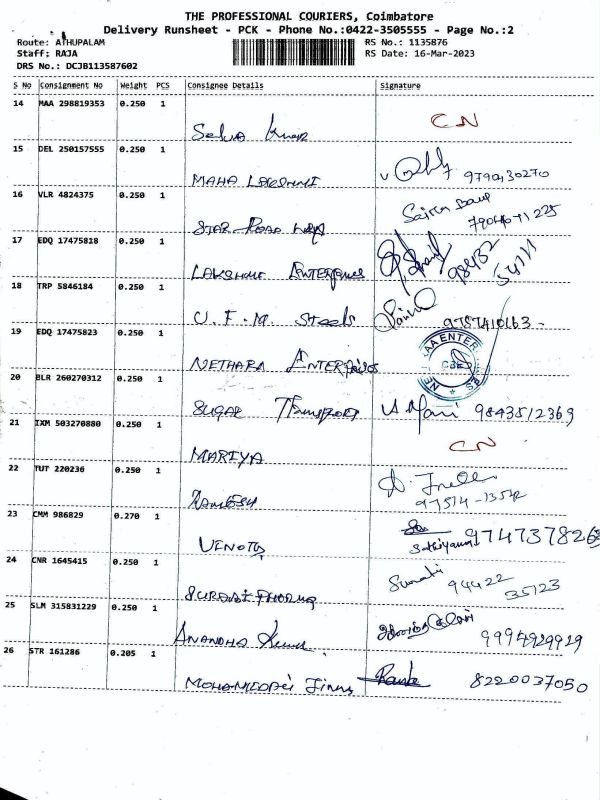 THE PROFESSIONAL COURIERS, Coimbatore
Delivery Runsheet - PCK - Phone No.:0422-3505555 - Page No.:2
Route: ATHUPALAM RS No.: 1135876
Staff: RAJA RS Date: 16-Mar-2023
DRS No.: DCJB113587602
S No Consignment No Weight PCS Consignee Details Signature
14 MAA 298819353 0.250 1
Selva Kumar CN
15 DEL 250157555 0.250 1
MAHA LAKSHMI 9790130270
16 VLR 4824375 0.250 1
STAR ROAD
17 EDQ 17475818 0.250 1
LAKSHMI ENTERPRISES 98432 54111
18 TRP 5846184 0.250 1
U.F.M. Steels 9787410163
19 EDQ 17475823 0.250 1
NETHARA ENTERPRISES
20 BLR 260270312 0.250 1
SUGAL TRANSPORT Mani 9843512369
21 IXM 503270880 0.250 1
MARIYA CN
22 TUT 220236 0.250 1
RAMESH 97514-13542
23 CMM 986829 0.270 1
VENOTH 9747378263
24 CNR 1645415 0.250 1
SURABI PHARMA Sumati 94422 35123
25 SLM 315831229 0.250 1
ANANDHA Kumar 9994929929
26 STR 161286 0.205 1
8220037050